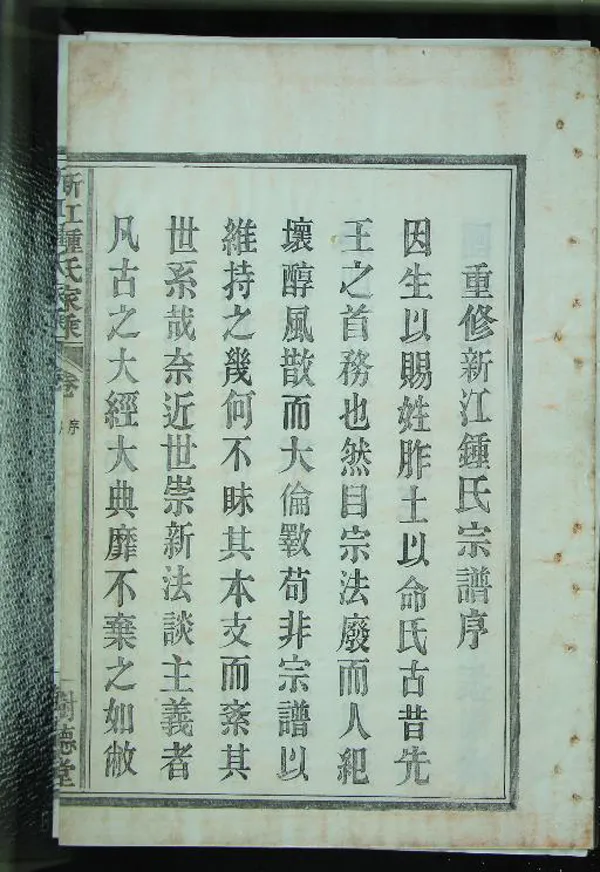 重修新江鍾氏宗譜序
因生以賜姓胙土以命氏古昔先
王之首務也然自宗法廢而人紀
壞醇風散而大倫斁苟非宗譜以
維持之幾何不昧其本支而紊其
世系哉奈近世崇新法談主義者
凡古之大經大典靡不棄之如敝
新江鍾氏家乘
卷
序
一
樹德堂